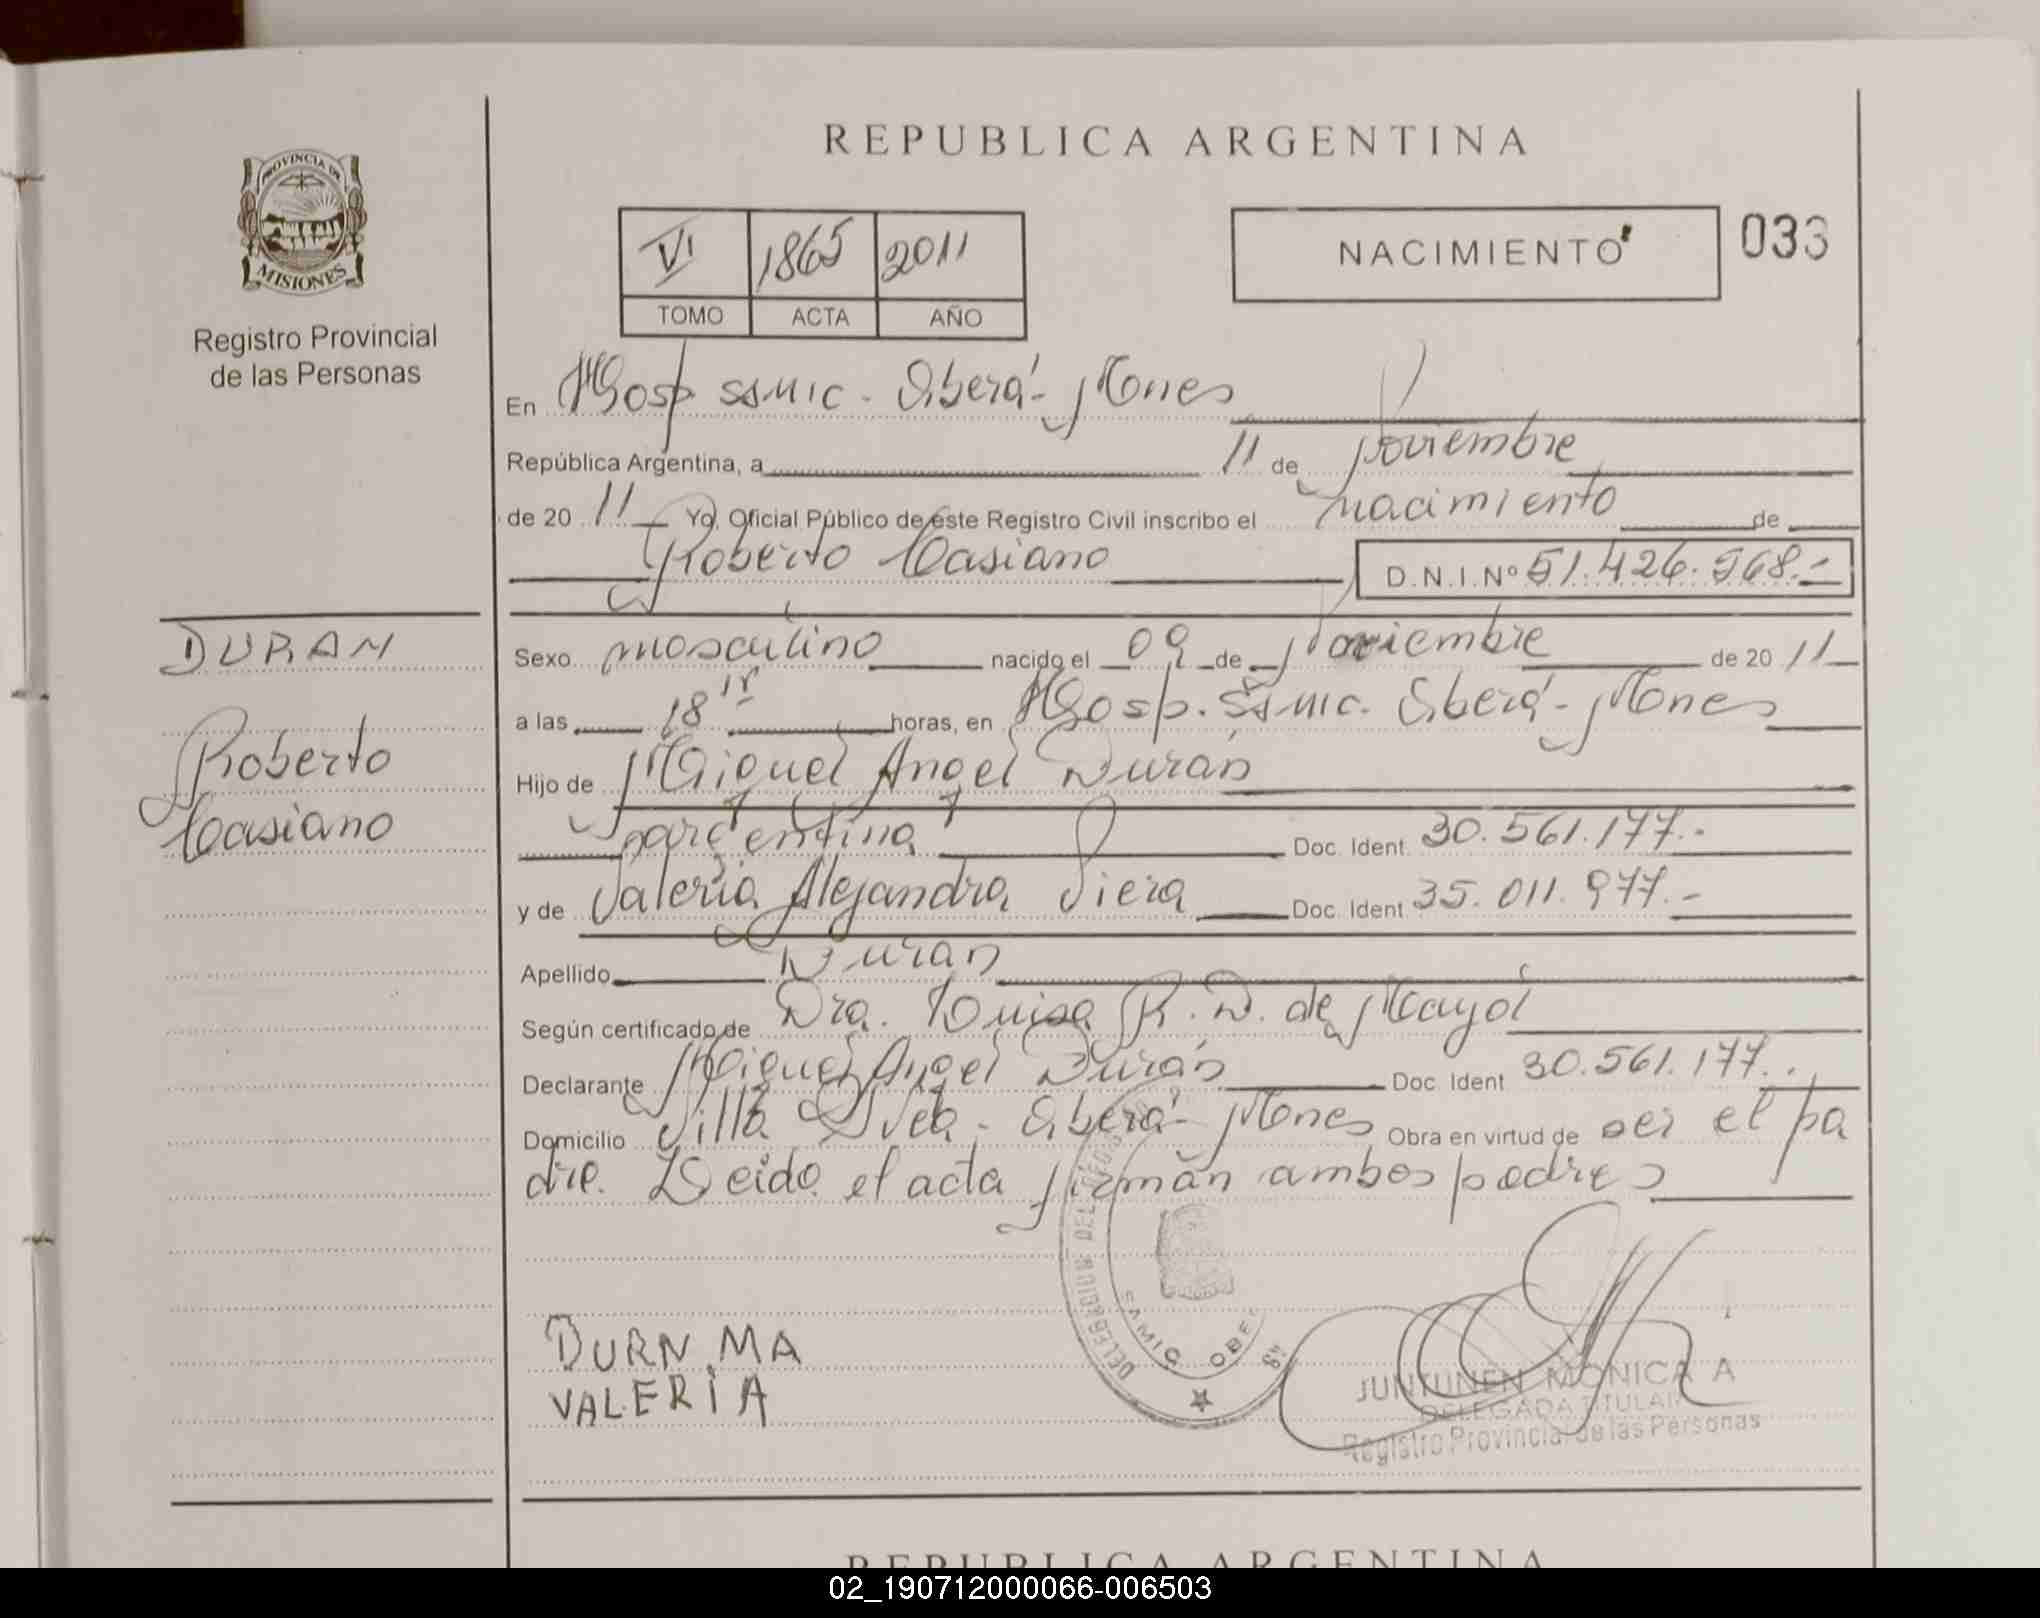 REPUBLICA ARGENTINA
PROVINCIA DE
MISIONES
Registro Provincial
de las Personas
VI 1865 2011
TOMO ACTA AÑO
NACIMIENTO 033
En Hosp SAMIC - Oberá - Mones
República Argentina, a 11 de Noviembre
de 20 11 Yo, Oficial Público de este Registro Civil inscribo el nacimiento de
Roberto Casiano D.N.I.Nº 51.426.968.-
DURAN
Sexo masculino nacido el 09 de Noviembre de 20 11
a las 18 horas, en Hosp. SAMIC. Oberá - Mones
Roberto
Hijo de Miguel Angel Durán
Casiano
argentina Doc. Ident. 30.561.177.-
y de Valeria Alejandra Viera Doc. Ident 35.011.977.-
Apellido Duran
Según certificado de Dra. Luisa R. D. de Mayol
Declarante Miguel Angel Durán Doc. Ident 30.561.177.
Domicilio Villa - Oberá - Mones Obra en virtud de ser el pa
dre. Leido el acta firman ambos padres
DURN MA
VALERIA
DELEGACION
SAMIC OBERA
JUNTUNEN MONICA A
DELEGADA TITULAR
Registro Provincial de las Personas
REPUBLICA ARGENTINA
02_190712000066-006503